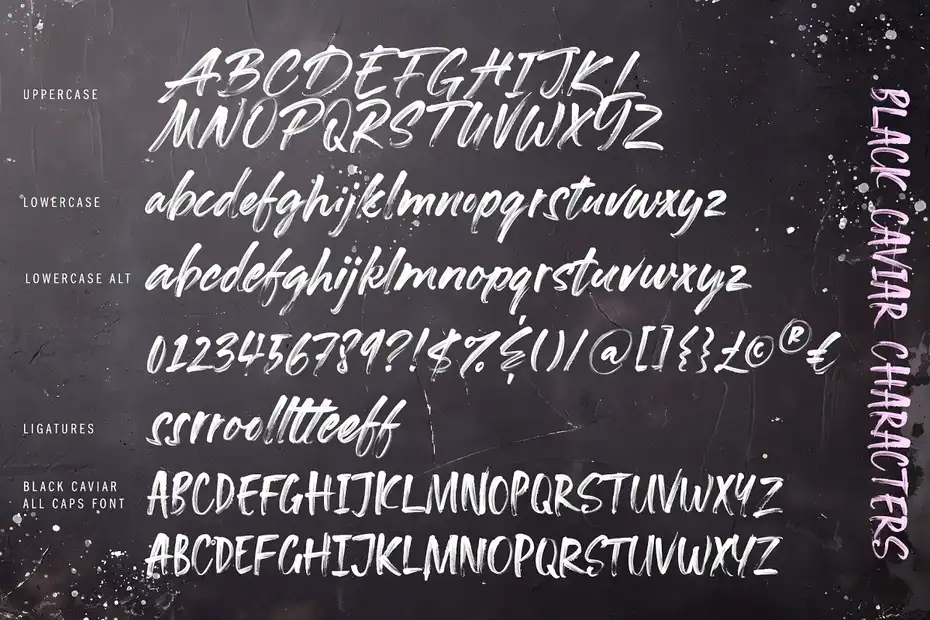 UPPERCASE
ABCDEFGHIJKL
MNOPQRSTUVWXYZ
LOWERCASE
abcdefghijklmnopqrstuvwxyz
LOWERCASE ALT
abcdefghijklmnopqrstuvwxyz
0123456789?!$%&()/@[]{}£©®€
LIGATURES
ssrroolltteeff
BLACK CAVIAR
ALL CAPS FONT
ABCDEFGHIJKLMNOPQRSTUVWXYZ
ABCDEFGHIJKLMNOPQRSTUVWXYZ
BLACK CAVIAR CHARACTERS